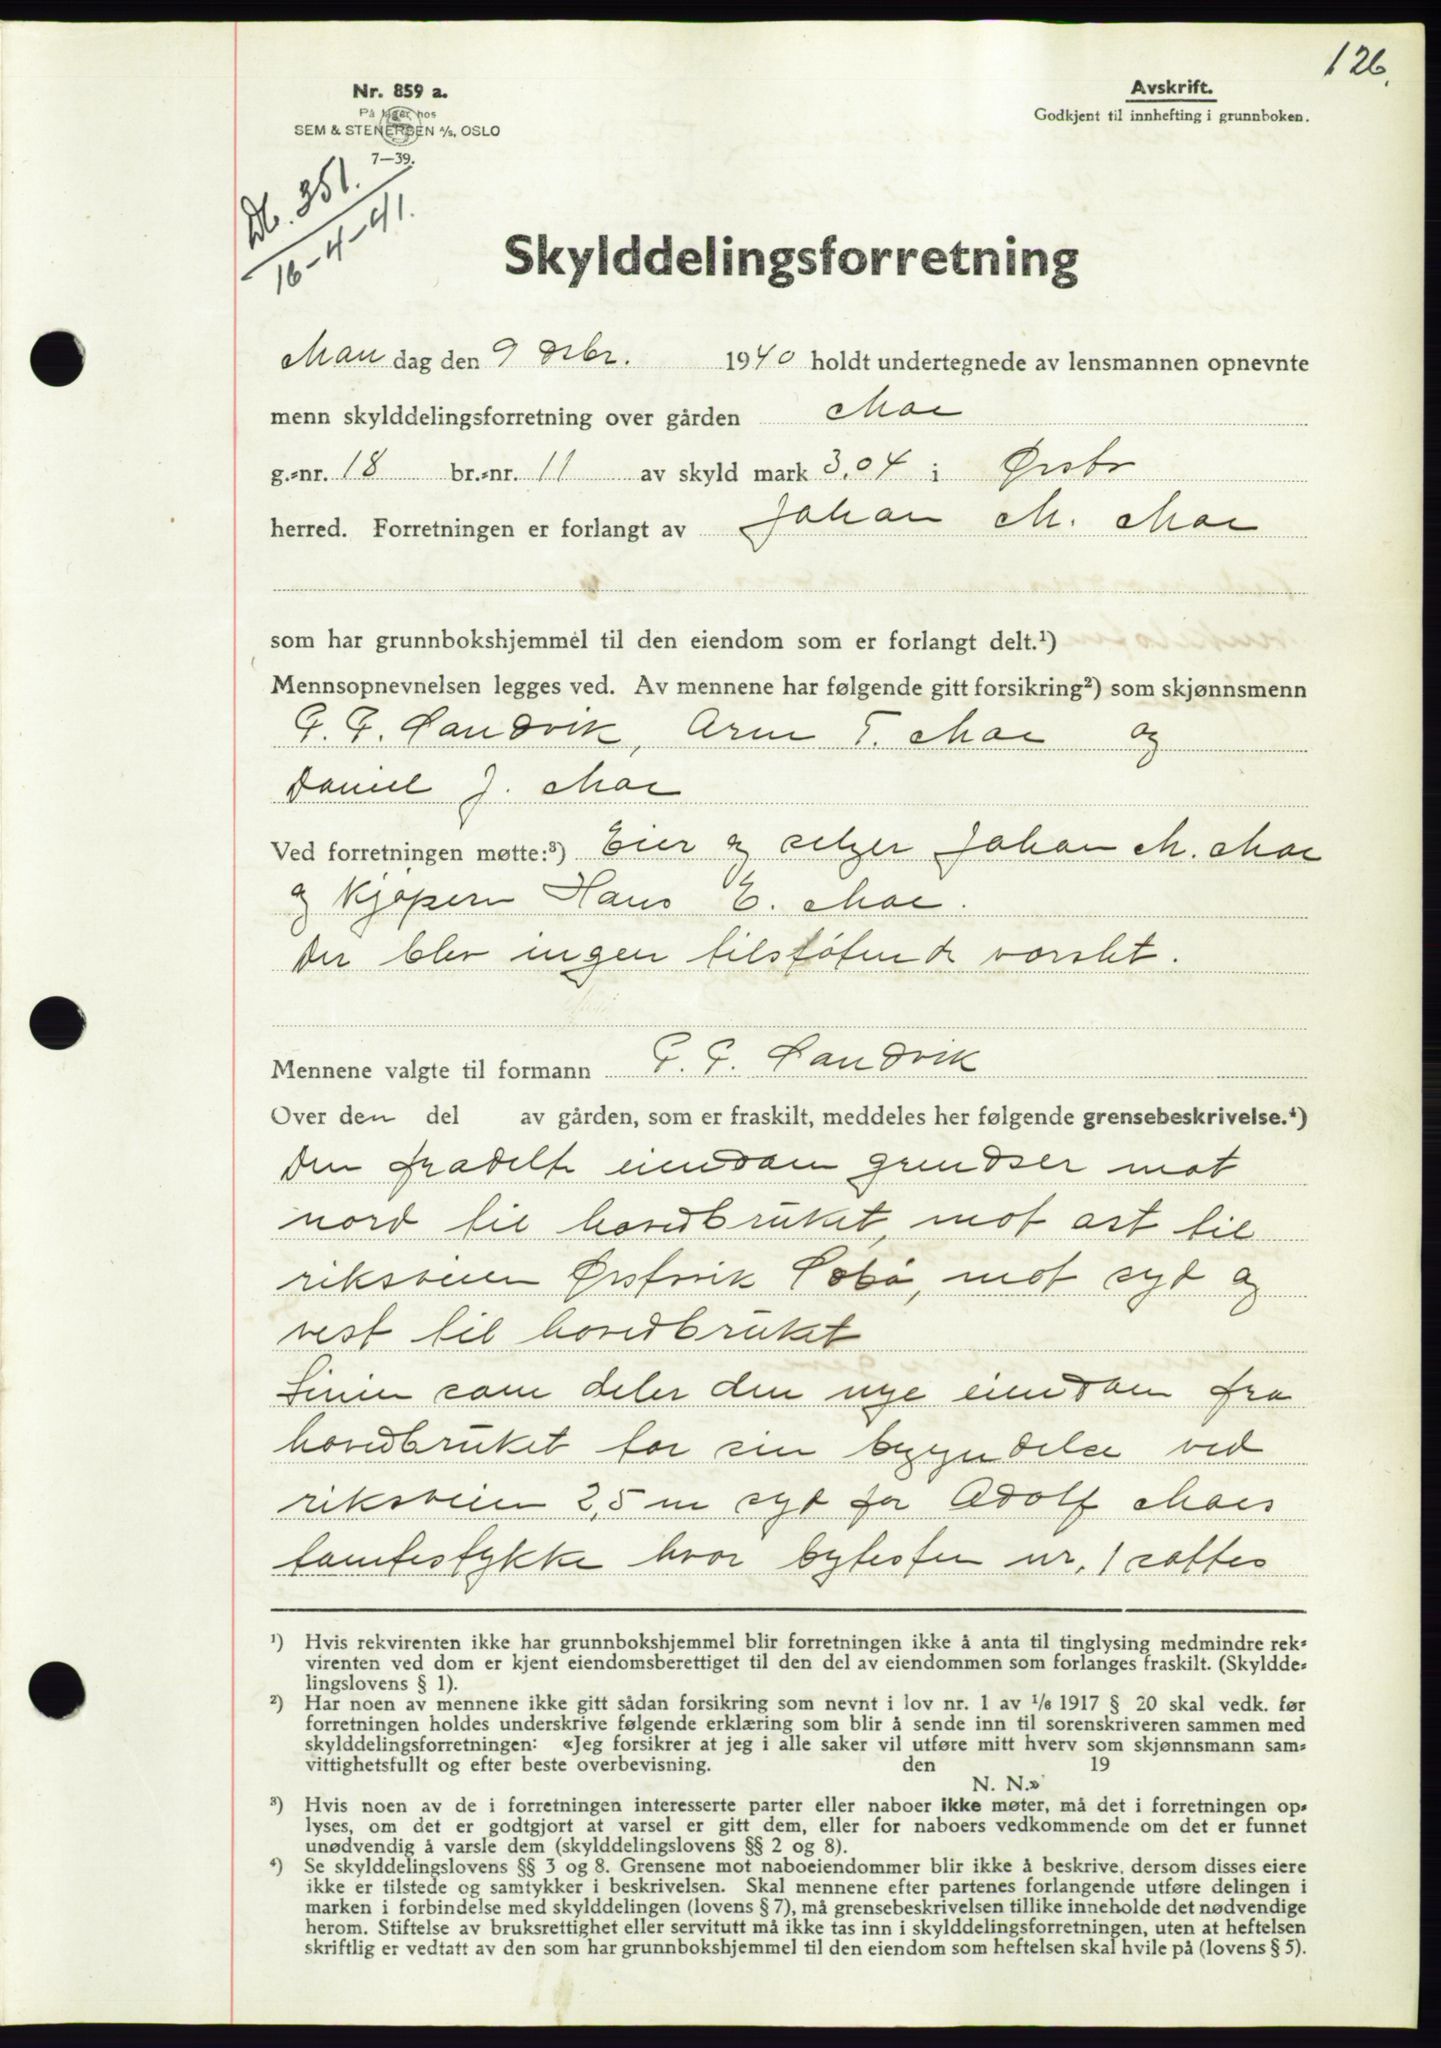 126.
Nr. 859 a.
På lager hos
SEM & STENERSEN A/S, OSLO
7—39.
Avskrift.
Godkjent til innhefting i grunnboken.
Db. 351.
16-4-41.
Skylddelingsforretning
Man dag den 9 dsbr. 1940 holdt undertegnede av lensmannen opnevnte
menn skylddelingsforretning over gården Moe
g.-nr. 18 br.-nr. 11 av skyld mark 3,04 i Ørsta
herred. Forretningen er forlangt av Johan M. Moe
som har grunnbokshjemmel til den eiendom som er forlangt delt.¹)
Mennsopnevnelsen legges ved. Av mennene har følgende gitt forsikring²) som skjønnsmenn
G. G. Sandvik, Arne T. Moe og
Daniel J. Moe
Ved forretningen møtte:³) Eier og selger Johan M. Moe
og kjøperen Hans E. Moe.
Der blev ingen tilstøtende varslet.
Mennene valgte til formann G. G. Sandvik
Over den del av gården, som er fraskilt, meddeles her følgende grensebeskrivelse.⁴)
Den fradelte eiendom grendser mot
nord til hovedbruket, mot ost til
riksveien Ørstavik Sæbø, mot syd og
vest til hovedbruket
Linien som deler den nye eiendom fra
hovedbruket tar sin begyndelse ved
riksveien 2,5 m syd for Adolf Moes
tomtestykke hvor bytesten nr. 1 sattes
¹) Hvis rekvirenten ikke har grunnbokshjemmel blir forretningen ikke å anta til tinglysing medmindre rek-
virenten ved dom er kjent eiendomsberettiget til den del av eiendommen som forlanges fraskilt. (Skyldde-
lingslovens § 1).
²) Har noen av mennene ikke gitt sådan forsikring som nevnt i lov nr. 1 av 1/6 1917 § 20 skal vedk. før
forretningen holdes underskrive følgende erklæring som blir å sende inn til sorenskriveren sammen med
skylddelingsforretningen: «Jeg forsikrer at jeg i alle saker vil utføre mitt hverv som skjønnsmann sam-
vittighetsfullt og efter beste overbevisning. den 19
N. N.»
³) Hvis noen av de i forretningen interesserte parter eller naboer ikke møter, må det i forretningen op-
lyses, om det er godtgjort at varsel er gitt dem, eller for naboers vedkommende om det er funnet
unødvendig å varsle dem (skylddelingslovens §§ 2 og 8).
⁴) Se skylddelingslovens §§ 3 og 8. Grensene mot naboeiendommer blir ikke å beskrive, dersom disses eiere
ikke er tilstede og samtykker i beskrivelsen. Skal mennene efter partenes forlangende utføre delingen i
marken i forbindelse med skylddelingen (lovens § 7), må grensebeskrivelsen tillike inneholde det nødvendige
herom. Stiftelse av bruksrettighet eller servitutt må ikke tas inn i skylddelingsforretningen, uten at heftelsen
skriftlig er vedtatt av den som har grunnbokshjemmel til den eiendom som heftelsen skal hvile på (lovens § 5).